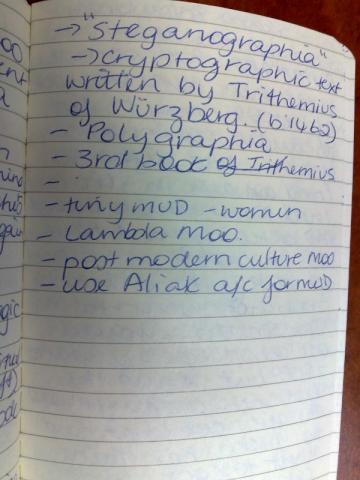 → "steganographia"
→ cryptographic text
written by Trithemius
of Würzberg. (b 1462)
- Polygraphia
- 3rd book of Trithemius
-
- tiny MUD - women
- Lambda MOO.
- post modern culture moo
- use Aliak a/c for MUD